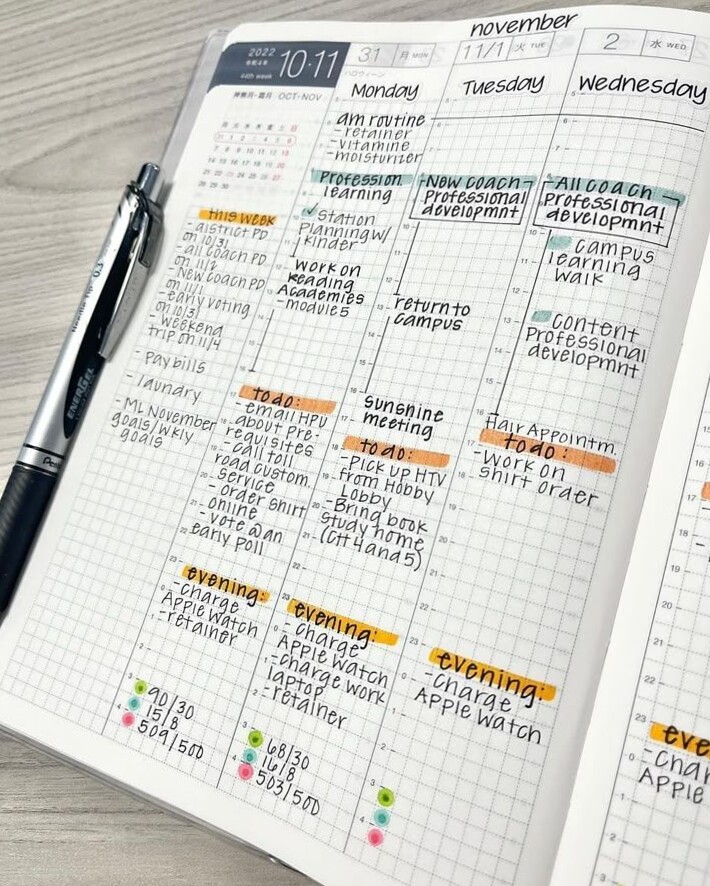 november
2022
令和4年
44th week
10·11
神無月・霜月 OCT-NOV
月 火 水 木 金 土 日
31 1 2 3 4 5 6
7 8 9 10 11 12 13
14 15 16 17 18 19 20
21 22 23 24 25 26 27
28 29 30
this week
- district PD
on 10/31
- all coach PD
on 11/2
- New coach PD
on 11/1
- early voting
on 10/31
- weekend
trip on 11/4
- pay bills
- laundry
- ML November
goals/wkly
goals
31 月 MON
ハロウィーン
Monday
am routine
- retainer
- vitamine
- moisturizer
Profession.
learning
✓ station
planning w/
kinder
work on
Reading
Academies
- module 5
to do:
- email HPU
about pre-
requisites
- call toll
road custom.
service
- order shirt
online
- vote @ an
early poll
evening:
- charge
Apple Watch
- retainer
90/30
15/8
509/500
11/1 火 TUE
Tuesday
New coach
Professional
developmnt
return to
campus
sunshine
meeting
to do:
- Pick up HTV
from Hobby
Lobby
- Bring book
study home
(CH 4 and 5)
evening:
- charge
Apple Watch
- charge work
laptop
- retainer
68/30
16/8
503/500
2 水 WED
Wednesday
All coach
Professional
developmnt
campus
learning
walk
content
Professional
developmnt
Hair Appointm.
to do:
- Work on
shirt order
evening:
- charge
Apple Watch
eve
- char
Apple
ENERGEL
Needle Tip 0.3